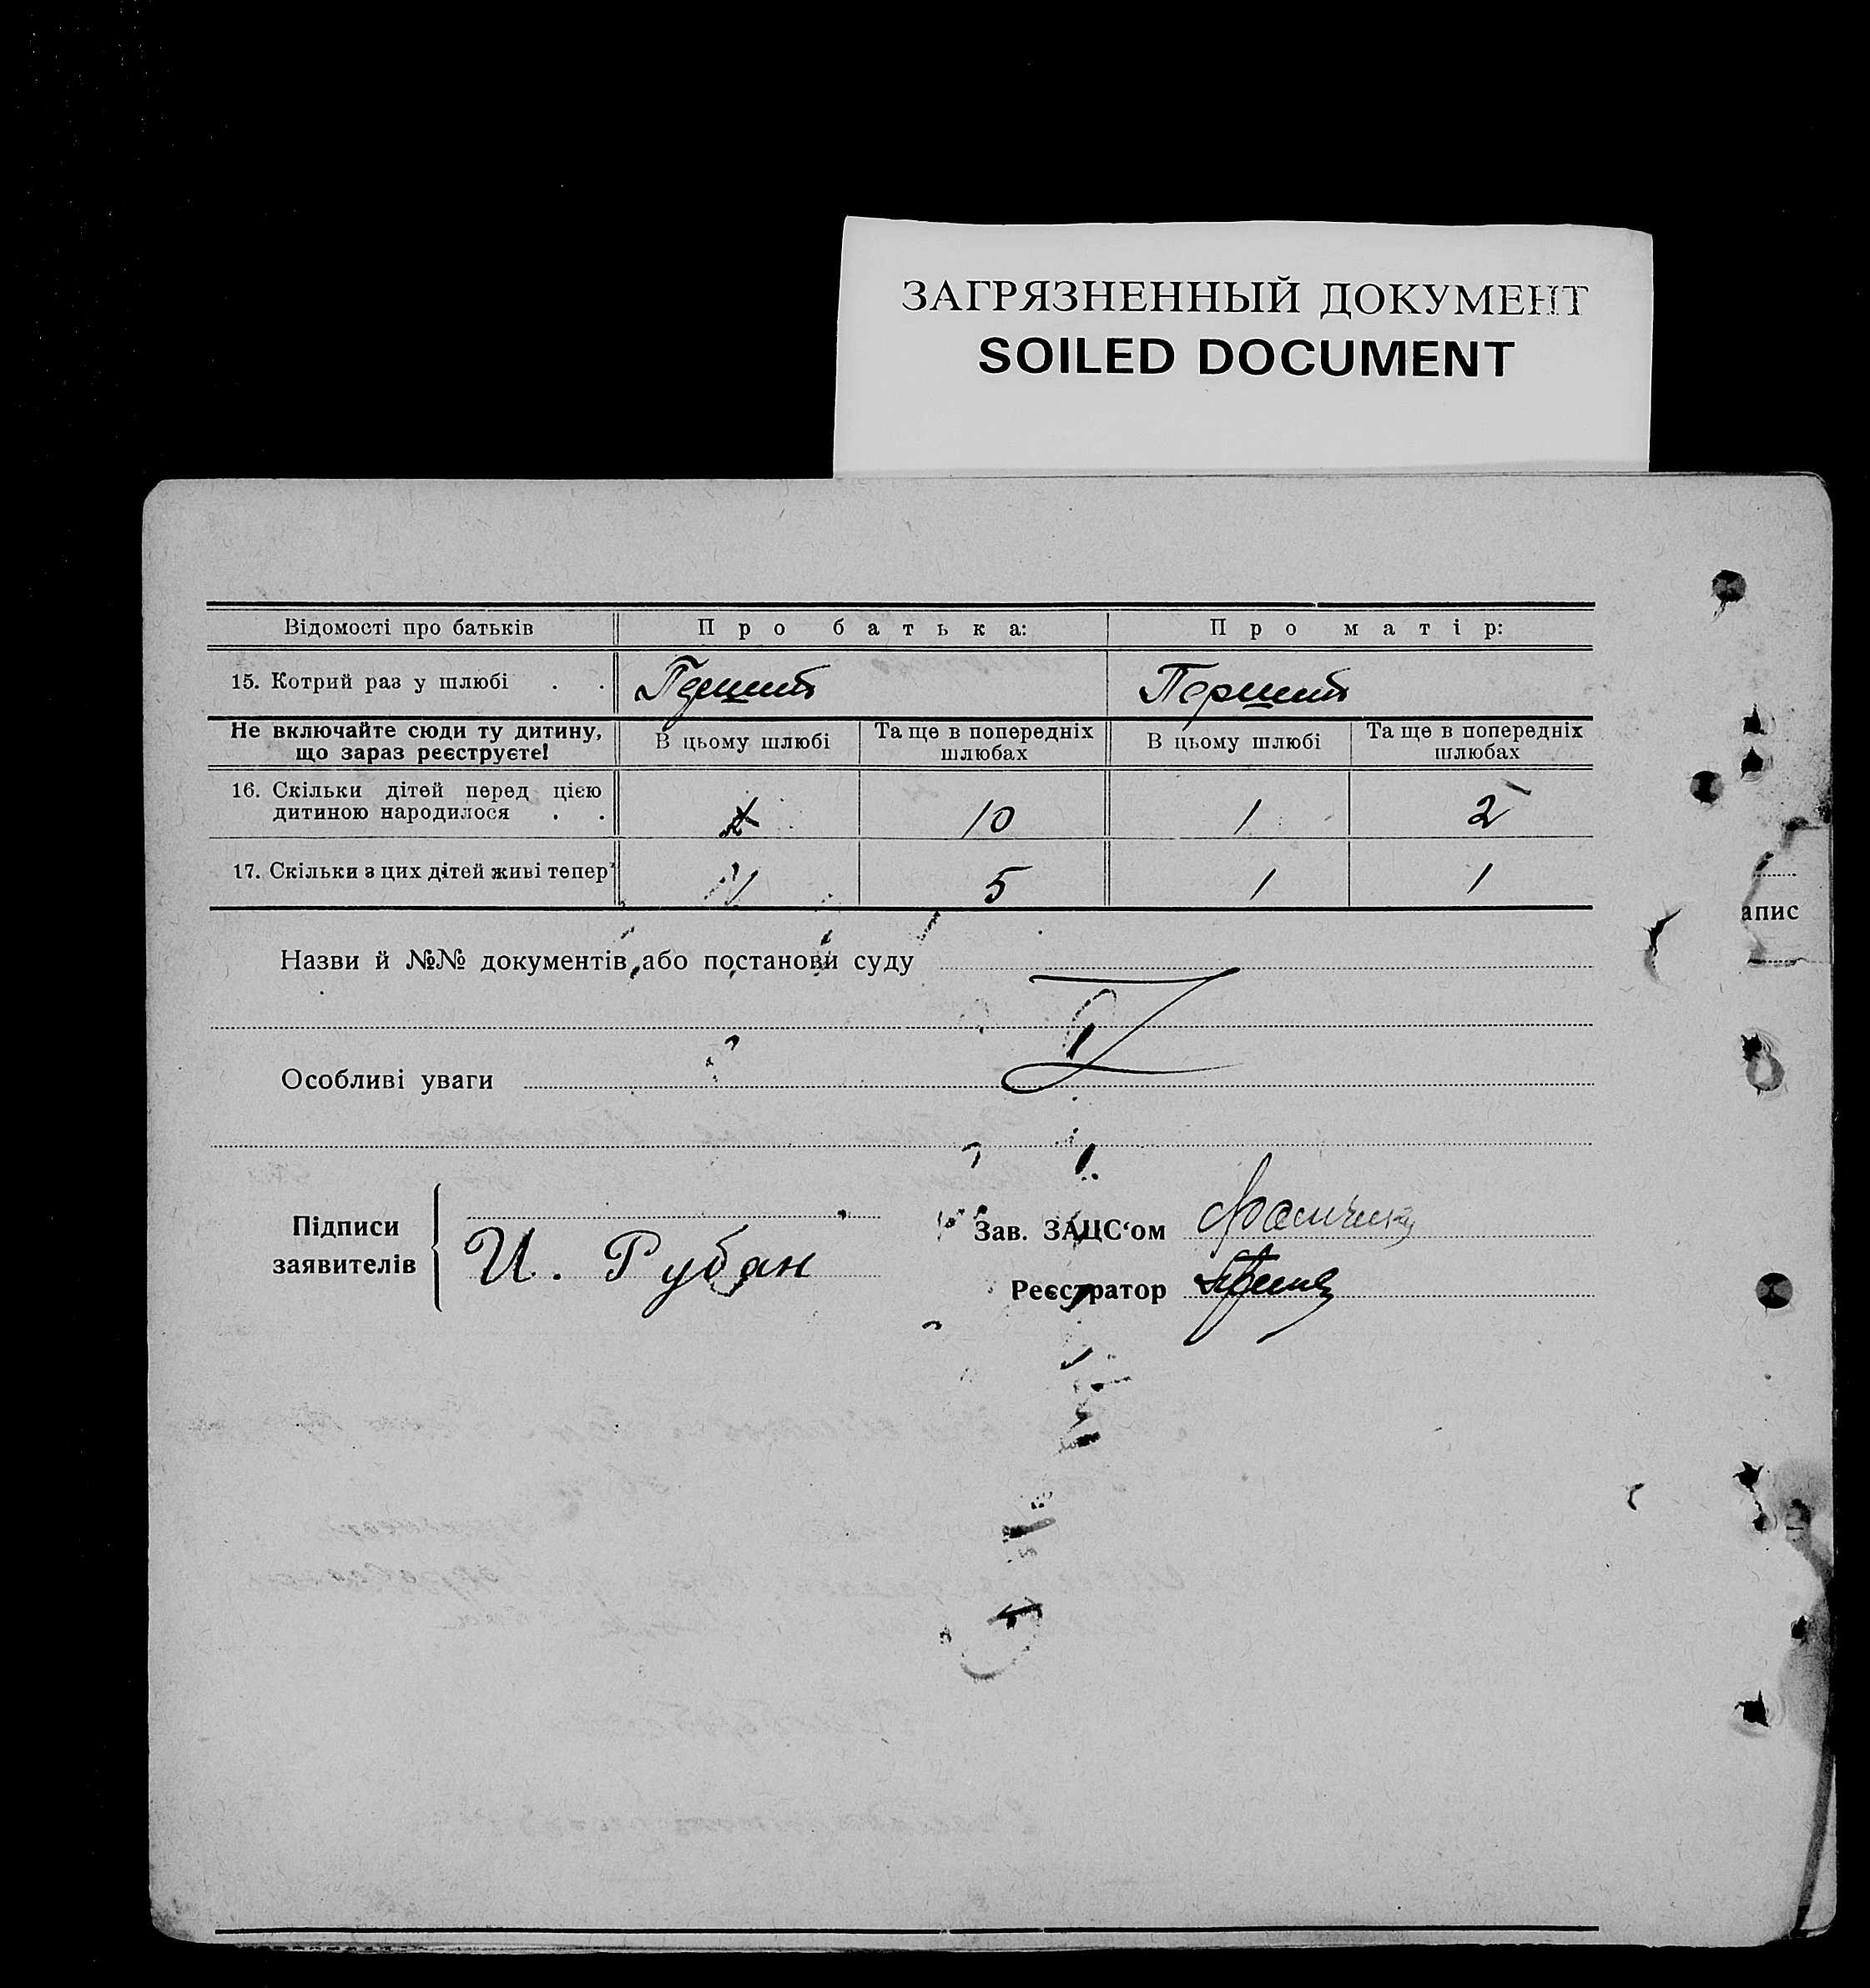 ЗАГРЯЗНЕННЫЙ ДОКУМЕНТ
SOILED DOCUMENT
Відомості про батьків Про батька: Про матір:
15. Котрий раз у шлюбі . . Перший Перший
Не включайте сюди ту дитину, що зараз реєструєте! В цьому шлюбі Та ще в попередніх шлюбах В цьому шлюбі Та ще в попередніх шлюбах
16. Скільки дітей перед цією
дитиною народилося . . 10 1 2
17. Скільки з цих дітей живі тепер? 5 1 1
апис
Назви й №№ документів або постанови суду
Особливі уваги
Підписи
заявителів
И. Рубан
Зав. ЗАЦС‘ом
Реєстратор